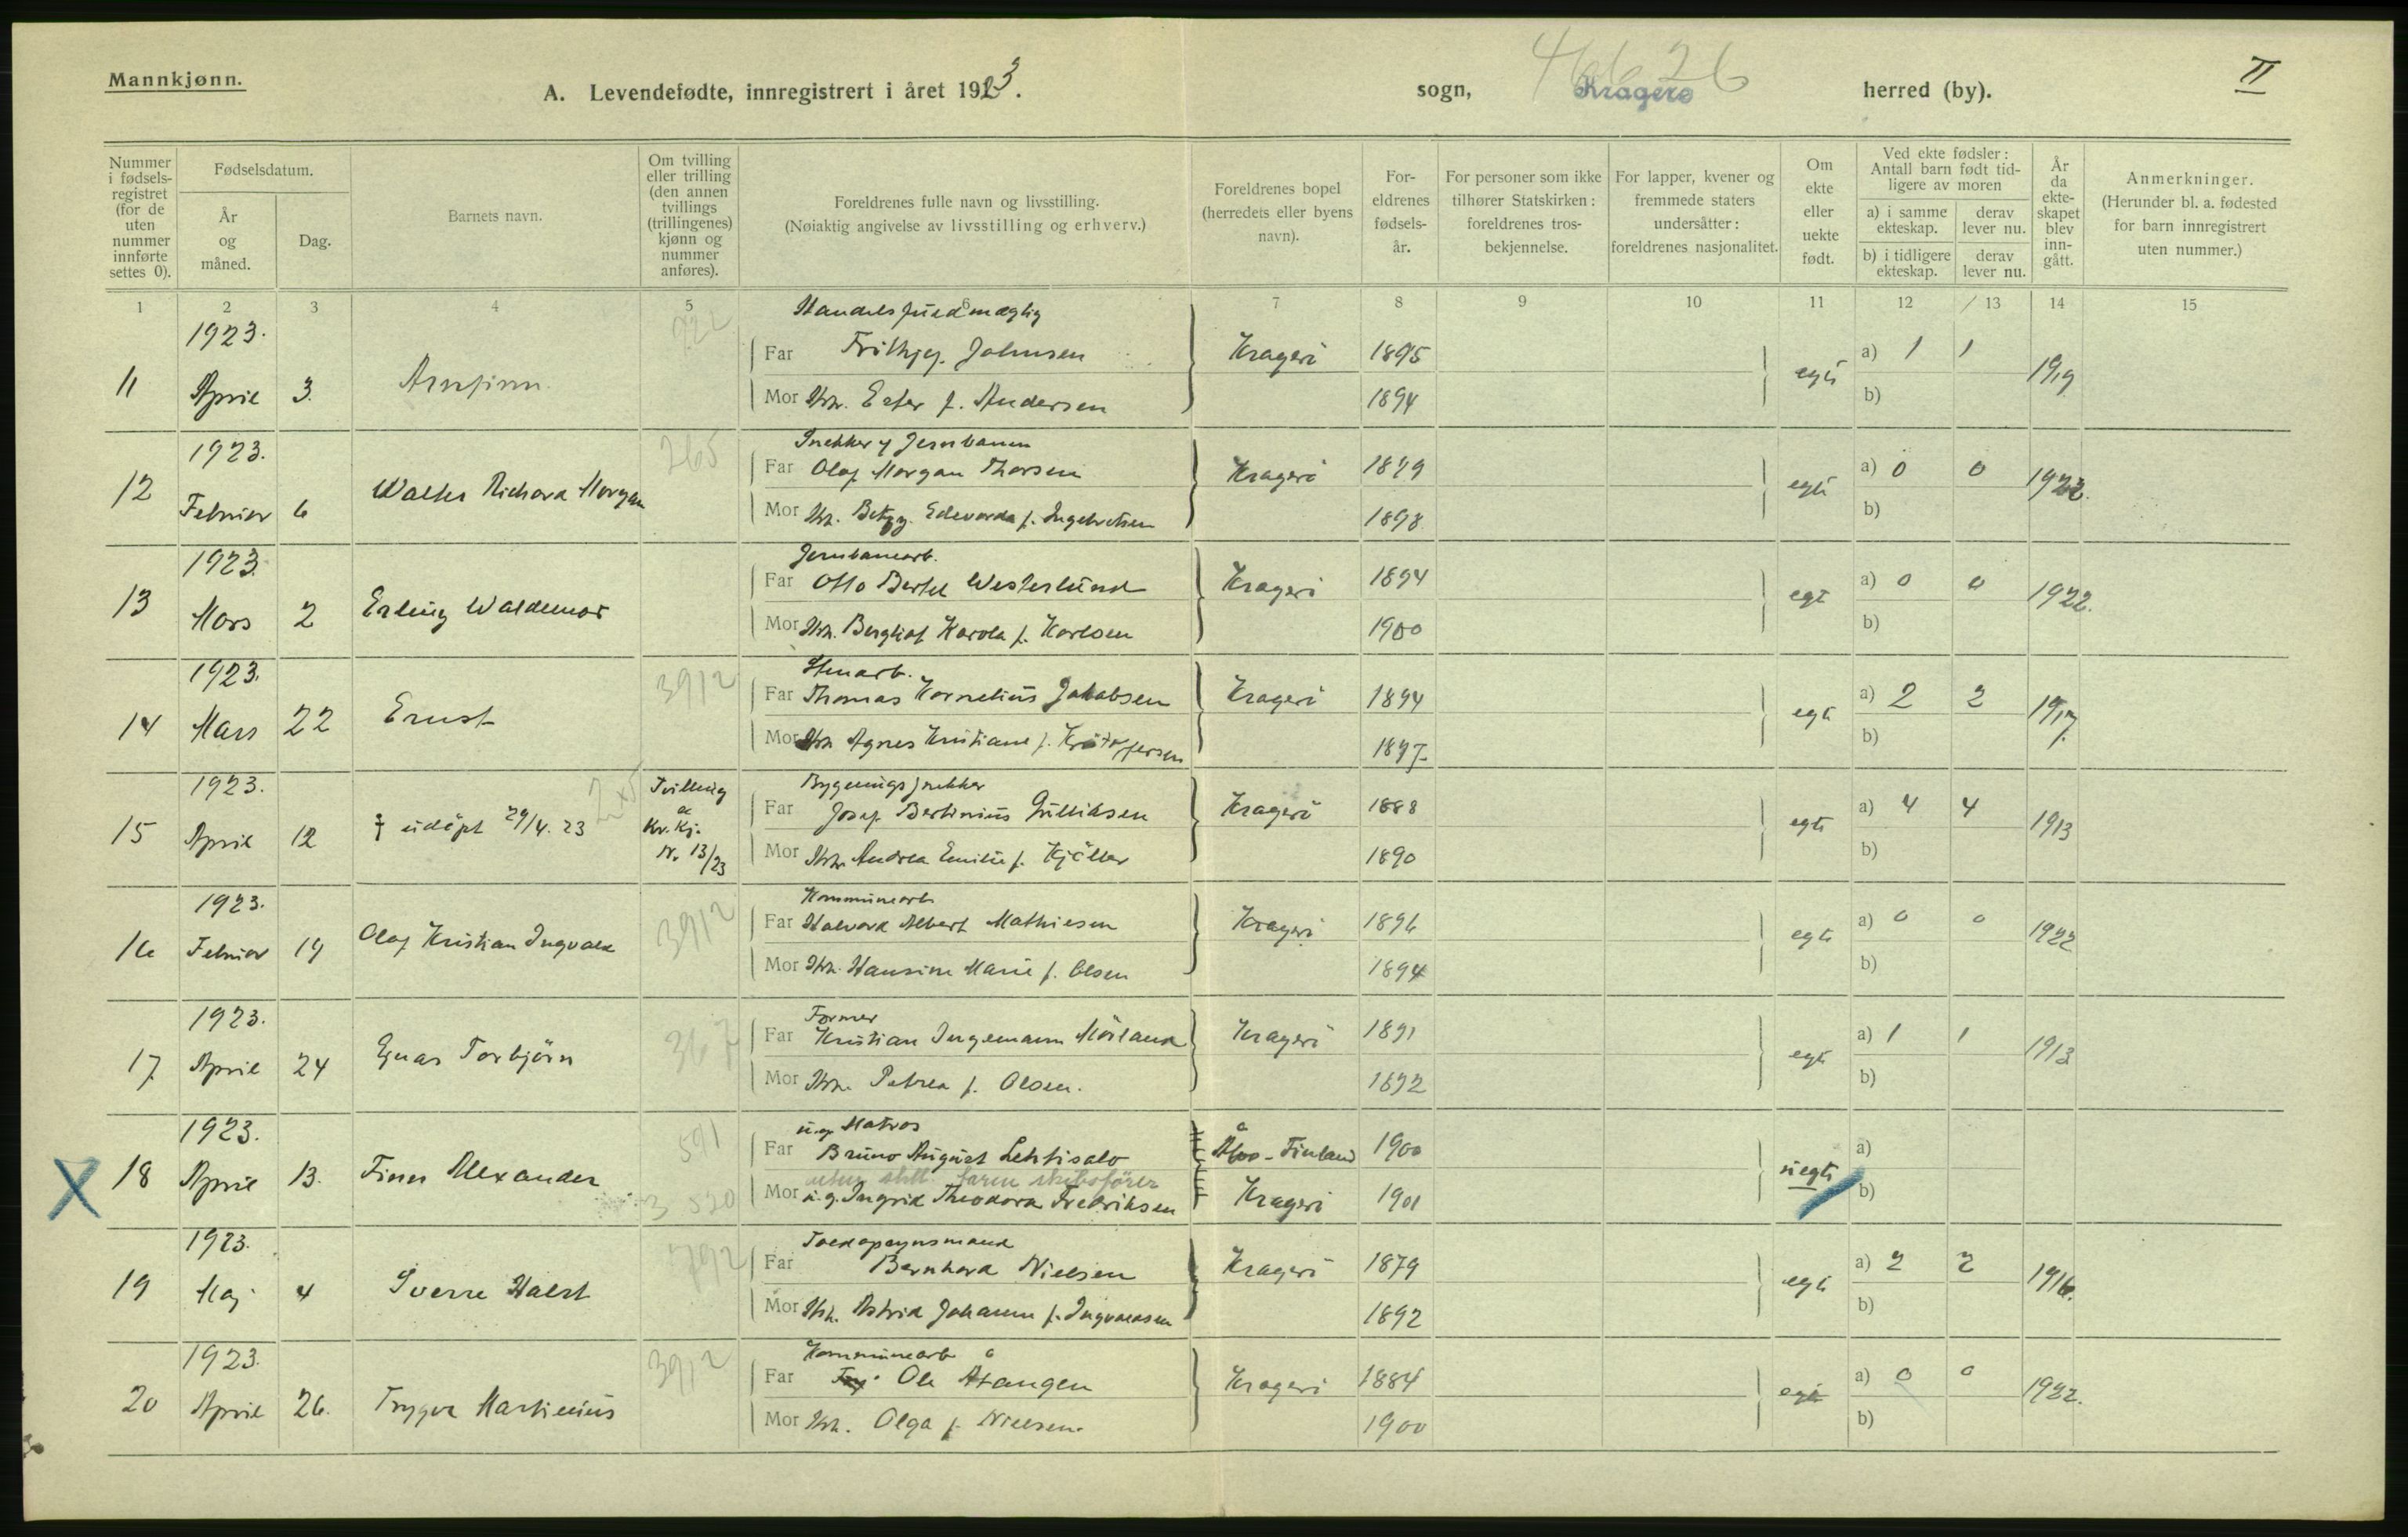 Mannkjønn.
A. Levendefødte, innregistrert i året 1923.
sogn, Kragerø herred (by).
46626
II
Nummer i fødselsregistret (for de uten nummer innførte settes 0).
Fødselsdatum.
År og måned.
Dag.
Barnets navn.
Om tvilling eller trilling (den annen tvillings (trillingenes) kjønn og nummer anføres).
Foreldrenes fulle navn og livsstilling.
(Nøiaktig angivelse av livsstilling og erhverv.)
Foreldrenes bopel (herredets eller byens navn).
Foreldrenes fødselsår.
For personer som ikke tilhører Statskirken: foreldrenes trosbekjennelse.
For lapper, kvener og fremmede staters undersåtter: foreldrenes nasjonalitet.
Om ekte eller uekte født.
Ved ekte fødsler: Antall barn født tidligere av moren
a) i samme ekteskap. derav lever nu.
b) i tidligere ekteskap. derav lever nu.
År da ekteskapet blev inngått.
Anmerkninger.
(Herunder bl. a. fødested for barn innregistrert uten nummer.)
1 2 3 4 5 6 7 8 9 10 11 12 13 14 15
1923.
11 April 3. Arnfinn
Far Johnsen Kragerö 1895 egte a) 1 1 1919
Mor Hr. Ester f. Andersen 1894 b)
1923. 265
Snekker v Jernbanen
12 Februar 6 Walter Richard Morgan
Far Olaf Morgan Thorsen Kragerö 1899 egte a) 0 0 1922.
Mor Hr. Betzy Edevarda f. Ingebretsen 1898 b)
1923.
Jernbanearb.
13 Mars 2 Erling Waldemar
Far Otto Bertel Westerlund Kragerö 1894 egte a) 0 0 1922.
Mor Hr. Bergliot Karola f. Karlsen 1900 b)
1923. 3912
Stenarb.
14 Mars 22 Ernst
Far Thomas Kornelius Jakobsen Kragerö 1894 egte a) 2 2 1917.
Mor Hr. Agnes Kristiane f. Kristoffersen 1897 b)
1923.
Bygningssnekker
15 April 12 † udöpt 29/4. 23 Tvilling a Kv. Kj. Nr. 13/23
Far Josef Bertinius Gulliksen Kragerö 1888 egte a) 4 4 1913
Mor Hr. Andrea Emilie f. Kjöller 1890 b)
1923. 3912
Kommunearb
16 Februar 19 Olaf Kristian Ingvald
Far Halvord Albert Mathiesen Kragerö 1896 egte a) 0 0 1922
Mor Hr. Hansine Marie f. Olsen 1894 b)
1923. 367
Former
17 April 24 Torbjörn
Far Kristian Ingemann Mörland Kragerö 1891 egte a) 1 1 1913
Mor Hr. Petrea f. Olsen. 1892 b)
1923. 591
u.g. Matros
X 18 April 13. Finn Alexander
Far Bruno August Lehtisalo Åbo - Finland 1900 uegte a)
Mor u.g. Ingrid Theodora Fredriksen Kragerö 1901 b)
1923. 792
Toldopsynsmand
19 Maj 4 Sverre Halst
Far Bernhard Nielsen Kragerö 1879 egte a) 2 2 1916.
Mor Hr. Astrid Johanne f. Ingvaldsen 1892 b)
1923. 3912
Kommunearb
20 April 26. Trygve Martinius
Far Ole Atangen Kragerö 1884 egte a) 0 0 1922.
Mor Hr. Olga f. Nielsen. 1900 b)